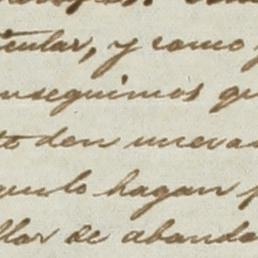 ticular, y como
nseguimos qu
to den nueva
que lo hagan p
llar se abando